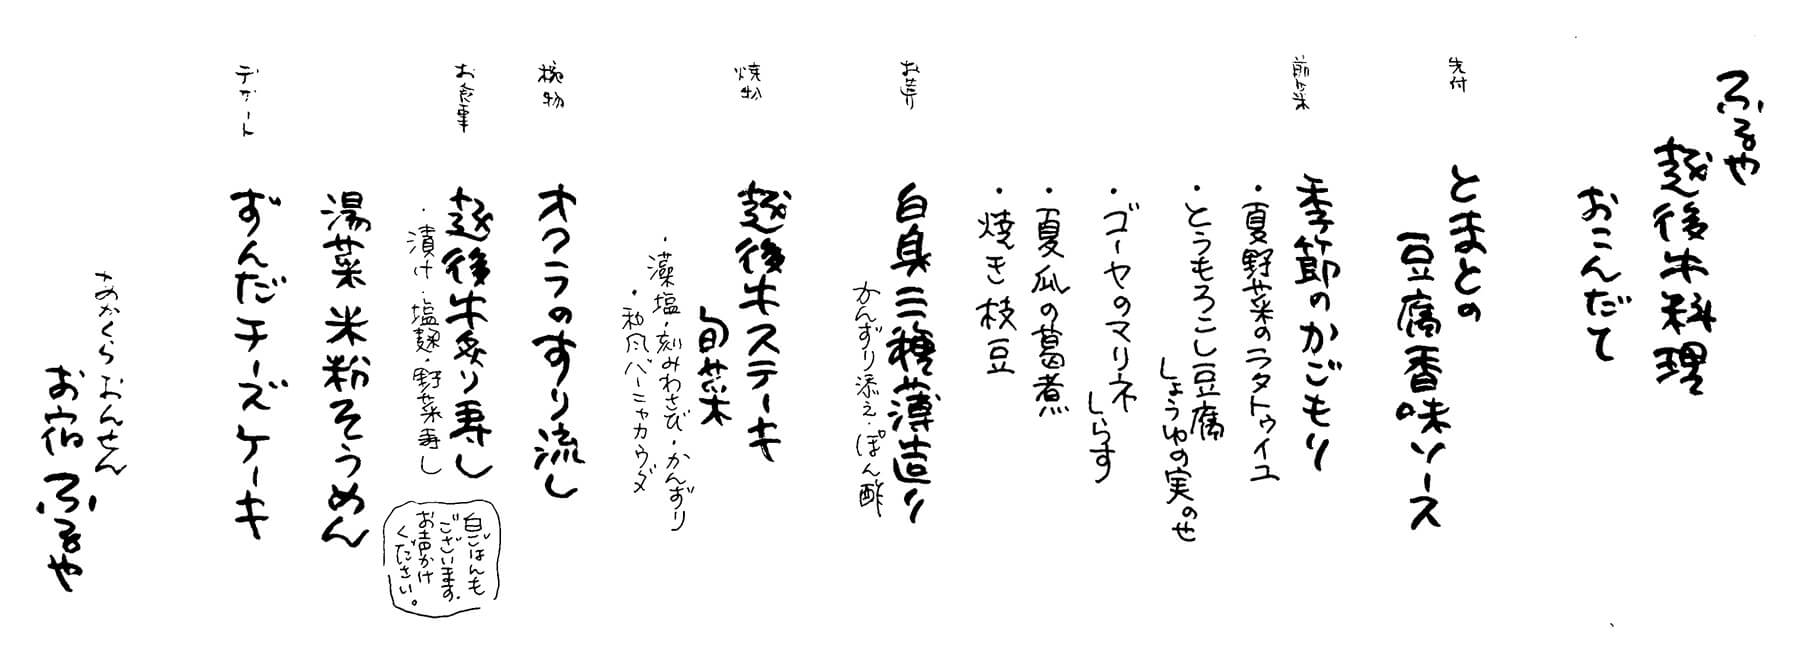 ふるや
越後牛料理
おこんだて
先付
とまとの
豆腐香味ソース
前菜
季節のかごもり
・夏野菜のラタトゥイユ
・とうもろこし豆腐
しょうゆの実のせ
・ゴーヤのマリネ
しらす
・夏瓜の葛煮
・焼き枝豆
お造り
白身三種薄造り
かんずり添え・ぽん酢
焼物
越後牛ステーキ
旬菜
・藻塩・刻みわさび・かんずり
・和風バーニャカウダ
椀物
オクラのすり流し
お食事
越後牛炙り寿し
・漬け・塩麹・野菜寿し
白ごはんも
ございます。
お声かけ
ください。
湯葉 米粉そうめん
デザート
ずんだチーズケーキ
あかくらおんせん
お宿 ふるや